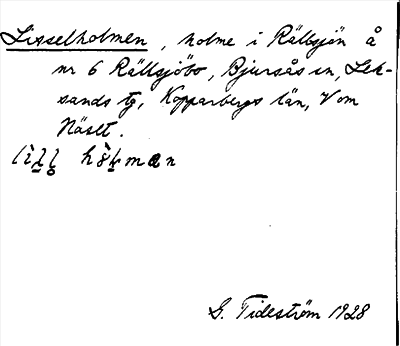 Lisselholmen, holme i Rällsjön å
nr 6 Rällsjöbo, Bjursås sn, Lek-
sands tg, Kopparbergs län, V om
Näset.
S. Tideström 1928